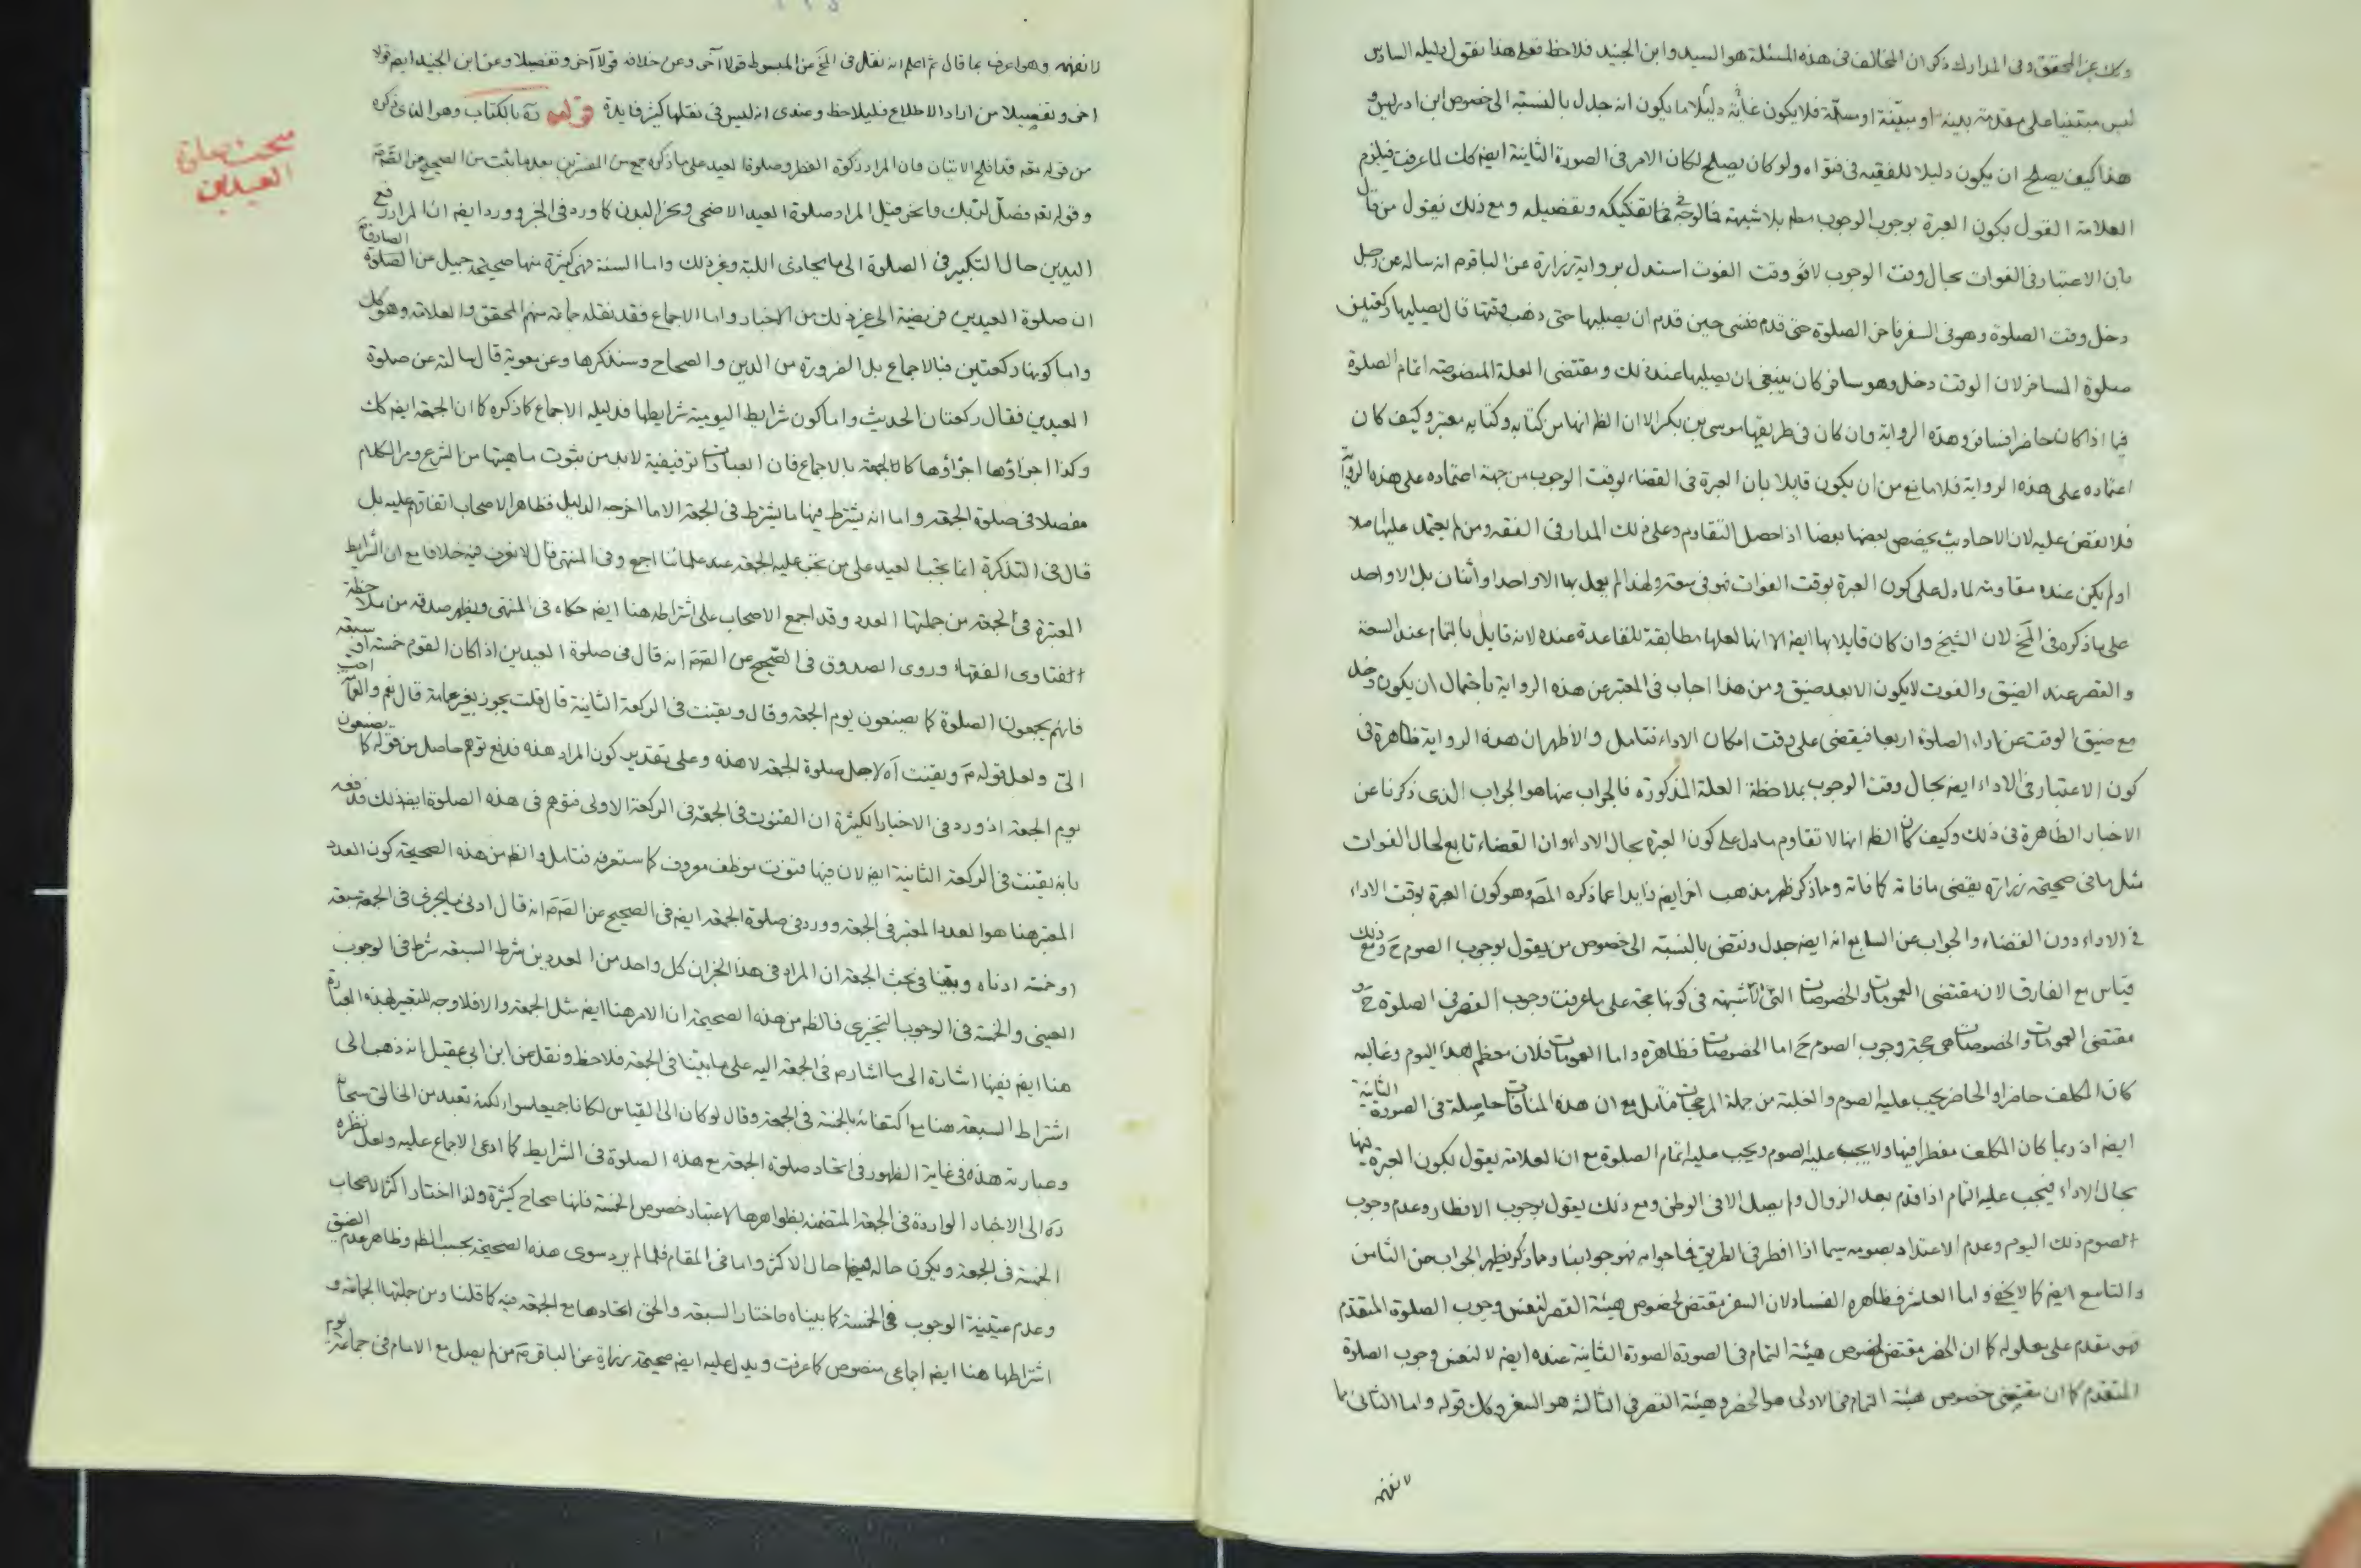 وكك عن المحقق وفى المدارك ذكر ان المخالف فى هذه المسئلة هو السيد وابن الجنيد فلاحظ فعلى هذا نقول دليله السادس
ليس مبتنيا على مقدمة بينة او مبيّنة او مسلّمة فلا يكون غايته دليلا ما يكون انه جدل بالنسبة الى خصوص ابن ادريس و
هذا كيف يصلح ان يكون دليلا للفقيه فى فتواه ولو كان يصلح لكان الامر فى الصورة الثانية ايضا كك لما عرفت فيلزم
العلامة القول بكون العبرة بوجوب الوجوب مطم بلا شبهة فما الوجه فى تفكيكه وتفصيله ومع ذلك نقول من قال
بان الاعتبار فى الفوات بحال وقت الوجوب لا وقت الفوت استدل برواية زرارة عن الباقرم انه ساله عن رجل
دخل وقت الصلوة وهو فى السفر فاخر الصلوة حتى قدم فنسى حين قدم ان يصليها حتى ذهب وقتها قال يصليها ركعتين
صلوة المسافر لان الوقت دخل وهو مسافر كان ينبغى ان يصليها عند ذلك ومقتضى العلة المنصوصة اتمام الصلوة
فيما اذا كان حاضرا فسافر وهذه الرواية وان كان فى طريقها موسى بن بكر الا ان الظ انها من كتابه وكتابه معتبر وكيف كان
اعتماده على هذه الرواية فلا مانع من ان يكون قايلا بان العبرة فى القضاء لوقت الوجوب من جهة اعتماده على هذه الرواية
فلا نقض عليه لان الاحاديث يخصص بعضها بعضا اذا حصل التقاوم وعلى ذلك المدار فى الفقه ومن لم يعتمد عليها اصلا
او لم يكن عنده مقاومة لما دل على كون العبرة بوقت الفوات فهو فى سعة ولهذا لم يعمل بها الا واحدا واثنان بل الا واحد
على ما ذكره فى المخ لان الشيخ وان كان قايلا بها ايضا الا انها لعلها مطابقة للقاعدة عنده لانه قايل بالتمام عند السعة
والقصر عند الضيق والفوت لا يكون الا بعد ضيق ومن هذا اجاب فى المعتبر عن هذه الرواية باحتمال ان يكون دخل
مع ضيق الوقت عن اداء الصلوة اربعا فيقضى على وقت امكان الاداء فتامل والاظهر ان هذه الرواية ظاهرة فى
كون الاعتبار فى الاداء ايضا بحال وقت الوجوب بملاحظة العلة المذكورة فالجواب عنها هو الجواب الذى ذكرنا عن
الاخبار الظاهرة فى ذلك وكيف كان الظ انها لا تقاوم ما دل على كون العبرة بحال الاداء وان القضاء تابع لحال الفوات
مثل ما فى صحيحة زرارة يقضى ما فاته كما فاته ومما ذكر ظهر مذهب اخر ايضا زايدا عما ذكره المصَ وهو كون العبرة بوقت الاداء
فى الاداء دون القضاء والجواب عن السابع انه ايضا جدل ونقض بالنسبة الى خصوص من يقول بوجوب الصوم حَ ومع ذلك
قياس مع الفارق لان مقتضى العمومات والخصوصات التى لا شبهة فى كونها حجة على ما عرفت وجوب القصر فى الصلوة حَ و
مقتضى العمومات والخصوصات هى حجة وجوب الصوم حَ اما الخصوصات فظاهرة واما العمومات فلان معظم هذا اليوم وغالبه
كان المكلف حاضرا والحاضر يجب عليه الصوم والغلبة من جملة المرجحات فتامل مع ان هذه المنافات حاصلة فى الصورة الثانية
ايضا اذ ربما كان المكلف مفطرا فيها ولا يجب عليه الصوم ويجب عليه اتمام الصلوة مع ان العلامة يقول بكون العبرة فيها
بحال الاداء فيجب عليه التمام اذا قدم بعد الزوال ولم يصل الا فى الوطن ومع ذلك يقول بوجوب الافطار وعدم وجوب
الصوم ذلك اليوم وعدم الاعتداد بصومه سيما اذا افطر فى الطريق فما جوابه فهو جوابنا ومما ذكر يظهر الجواب عن الثامن
والتاسع ايضا كما لا يخفى واما العاشر فظاهر الفساد لان السفر مقتض لخصوص هيئة القصر لا لنفس وجوب الصلوة المتقدم
فهو مقدم على معلوله كما ان الحضر مقتض لخصوص هيئة التمام فى الصورة الثانية عنده ايضا لا لنفس وجوب الصلوة
المتقدم كما ان مقتضى خصوص هيئة التمام فى الاولى هو الحضر وهيئة القصر فى الثالثة هو السفر وكك قوله واما الثانى ما
لا نفهمه
لا نفهمه وهو اعرف بما قال ثم اعلم انه نقل فى المخ عن المبسوط قولا آخر وعن خلافه قولا آخر وتفصيلا وعن ابن الجنيد ايضا قولا
اخر وتفصيلا من اراد الاطلاع فليلاحظ وعندى انه ليس فى نقلها كثير فايدة قوله رَه بالكتاب وهو الذى ذكره
من قوله تعه قد افلح الايتان فان المراد زكوة الفطر وصلوة العيد على ما ذكره جمع من المفسرين بعد ما ثبت من الصحيح عن الصَم
وقوله تعم فصلّ لربك وانحر قيل المراد صلوة العيد الاضحى ونحر البدن كما ورد فى الخبر وورد ايضا ان المراد رفع
اليدين حال التكبير فى الصلوة الى ما يحاذى اللبة وغير ذلك واما السنة فهى كثيرة منها صحيحة جميل عن الصادق
ان صلوة العيدين فريضة الى غير ذلك من الاخبار واما الاجماع فقد نقله جماعة منهم المحقق والعلامة وهو كك
واما كونها ركعتين فبالاجماع بل الضرورة من الدين والصحاح وسنذكرها وعن معوية قال سالته عن صلوة
العيدين فقال ركعتان الحديث واما كون شرايط اليومية شرايطها فدليله الاجماع كما ذكره كما ان الجمعة ايضا كك
وكذا اجزاؤها اجزاؤها كالجمعة بالاجماع فان العبادات توقيفية لا بد من ثبوت ماهيتها من الشرع ومر الكلام
مفصلا فى صلوة الجمعة واما انه يشترط فيها ما يشترط فى الجمعة الا ما اخرجه الدليل فظاهر الاصحاب اتفاقهم عليه بل
قال فى التذكرة انما يجب العيد على من تجب عليه الجمعة عند علمائنا اجمع وفى المنتهى قال لا نعرف فيه خلافا مع ان الشرايط
المعتبرة فى الجمعة من جملتها العدد وقد اجمع الاصحاب على اشتراطه هنا ايضا حكاه فى المنتهى ويظهر صدقه من ملاحظة
الفتاوى الفقهاء وروى الصدوق فى الصحيح عن الصَم انه قال فى صلوة العيدين اذا كان القوم خمسة او سبعة
فانهم يجمعون الصلوة كما يصنعون يوم الجمعة وقال ويقنت فى الركعة الثانية قال قلت يجوز بغير عمامة قال نعم والعمامة احب
الىّ ولعل قوله مَ ويقنت آه لاجل صلوة الجمعة لا هذه وعلى تقدير كون المراد هذه فدفع توهم حاصل من قوله كما يصنعون
يوم الجمعة اذ ورد فى الاخبار الكثيرة ان القنوت فى الجمعة فى الركعة الاولى فتوهم فى هذه الصلوة ايضا ذلك فدفعه
بانه يقنت فى الركعة الثانية ايضا لان فيها قنوت موظف معروف كما ستعرفه فتامل والظ من هذه الصحيحة كون العدد
المعتبر هنا هو العدد المعتبر فى الجمعة وورد فى صلوة الجمعة ايضا فى الصحيح عن الصَم انه قال ادنى ما يجزى فى الجمعة سبعة
او خمسة ادناه وبيّنا فى بحث الجمعة ان المراد فى هذا الخبر ان كل واحد من العددين شرط السبعة شرط فى الوجوب
العينى والخمسة فى الوجوب التخيرى فالظ من هذه الصحيحة ان الامر هنا ايضا مثل الجمعة والا فلا وجه للتعبير بهذه العبارة
هنا ايضا ففيها اشارة الى ما اشار م فى الجمعة اليه على ما بيّنا فى الجمعة فلاحظ ونقل عن ابن ابى عقيل انه ذهب الى
اشتراط السبعة هنا مع اكتفائه بالخمسة فى الجمعة وقال لو كان الى القياس لكانا جميعا سواء لكنه تعبد من الخالق سبحانه
وعبارته هذه فى غاية الظهور فى اتحاد صلوة الجمعة مع هذه الصلوة فى الشرايط كما ادعى الاجماع عليه ولعل نظره
رَه الى الاخبار الواردة فى الجمعة المتضمنة بظواهرها لاعتبار خصوص الخمسة فانها صحاح كثيرة ولذا اختار اكثر الاصحاب
الخمسة فى الجمعة ويكون حاله فيها حال الاكثر واما فى المقام فلما لم يرد سوى هذه الصحيحة بحسب الظ وظاهر عدم الضيق
وعدم عينية الوجوب فى الخمسة كما بيناه فاختار السبعة والحق اتحادها مع الجمعة فيه كما قلنا ومن جملتها الجماعة و
اشتراطها هنا ايضا اجماعى منصوص كما عرفت ويدل عليه ايضا صحيحة زرارة عن الباقر مَ من لم يصل مع الامام فى جماعة يوم
مبحث صلوة
العيدين